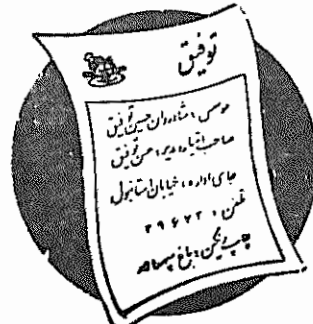 توفیق
موسس: شادروان حسین توفیق
صاحب امتیاز و مدیر: حسن توفیق
جای اداره: خیابان استانبول
تلفن: ۳۹۶۷۳
چاپ رنگین: باغ سپهسالار